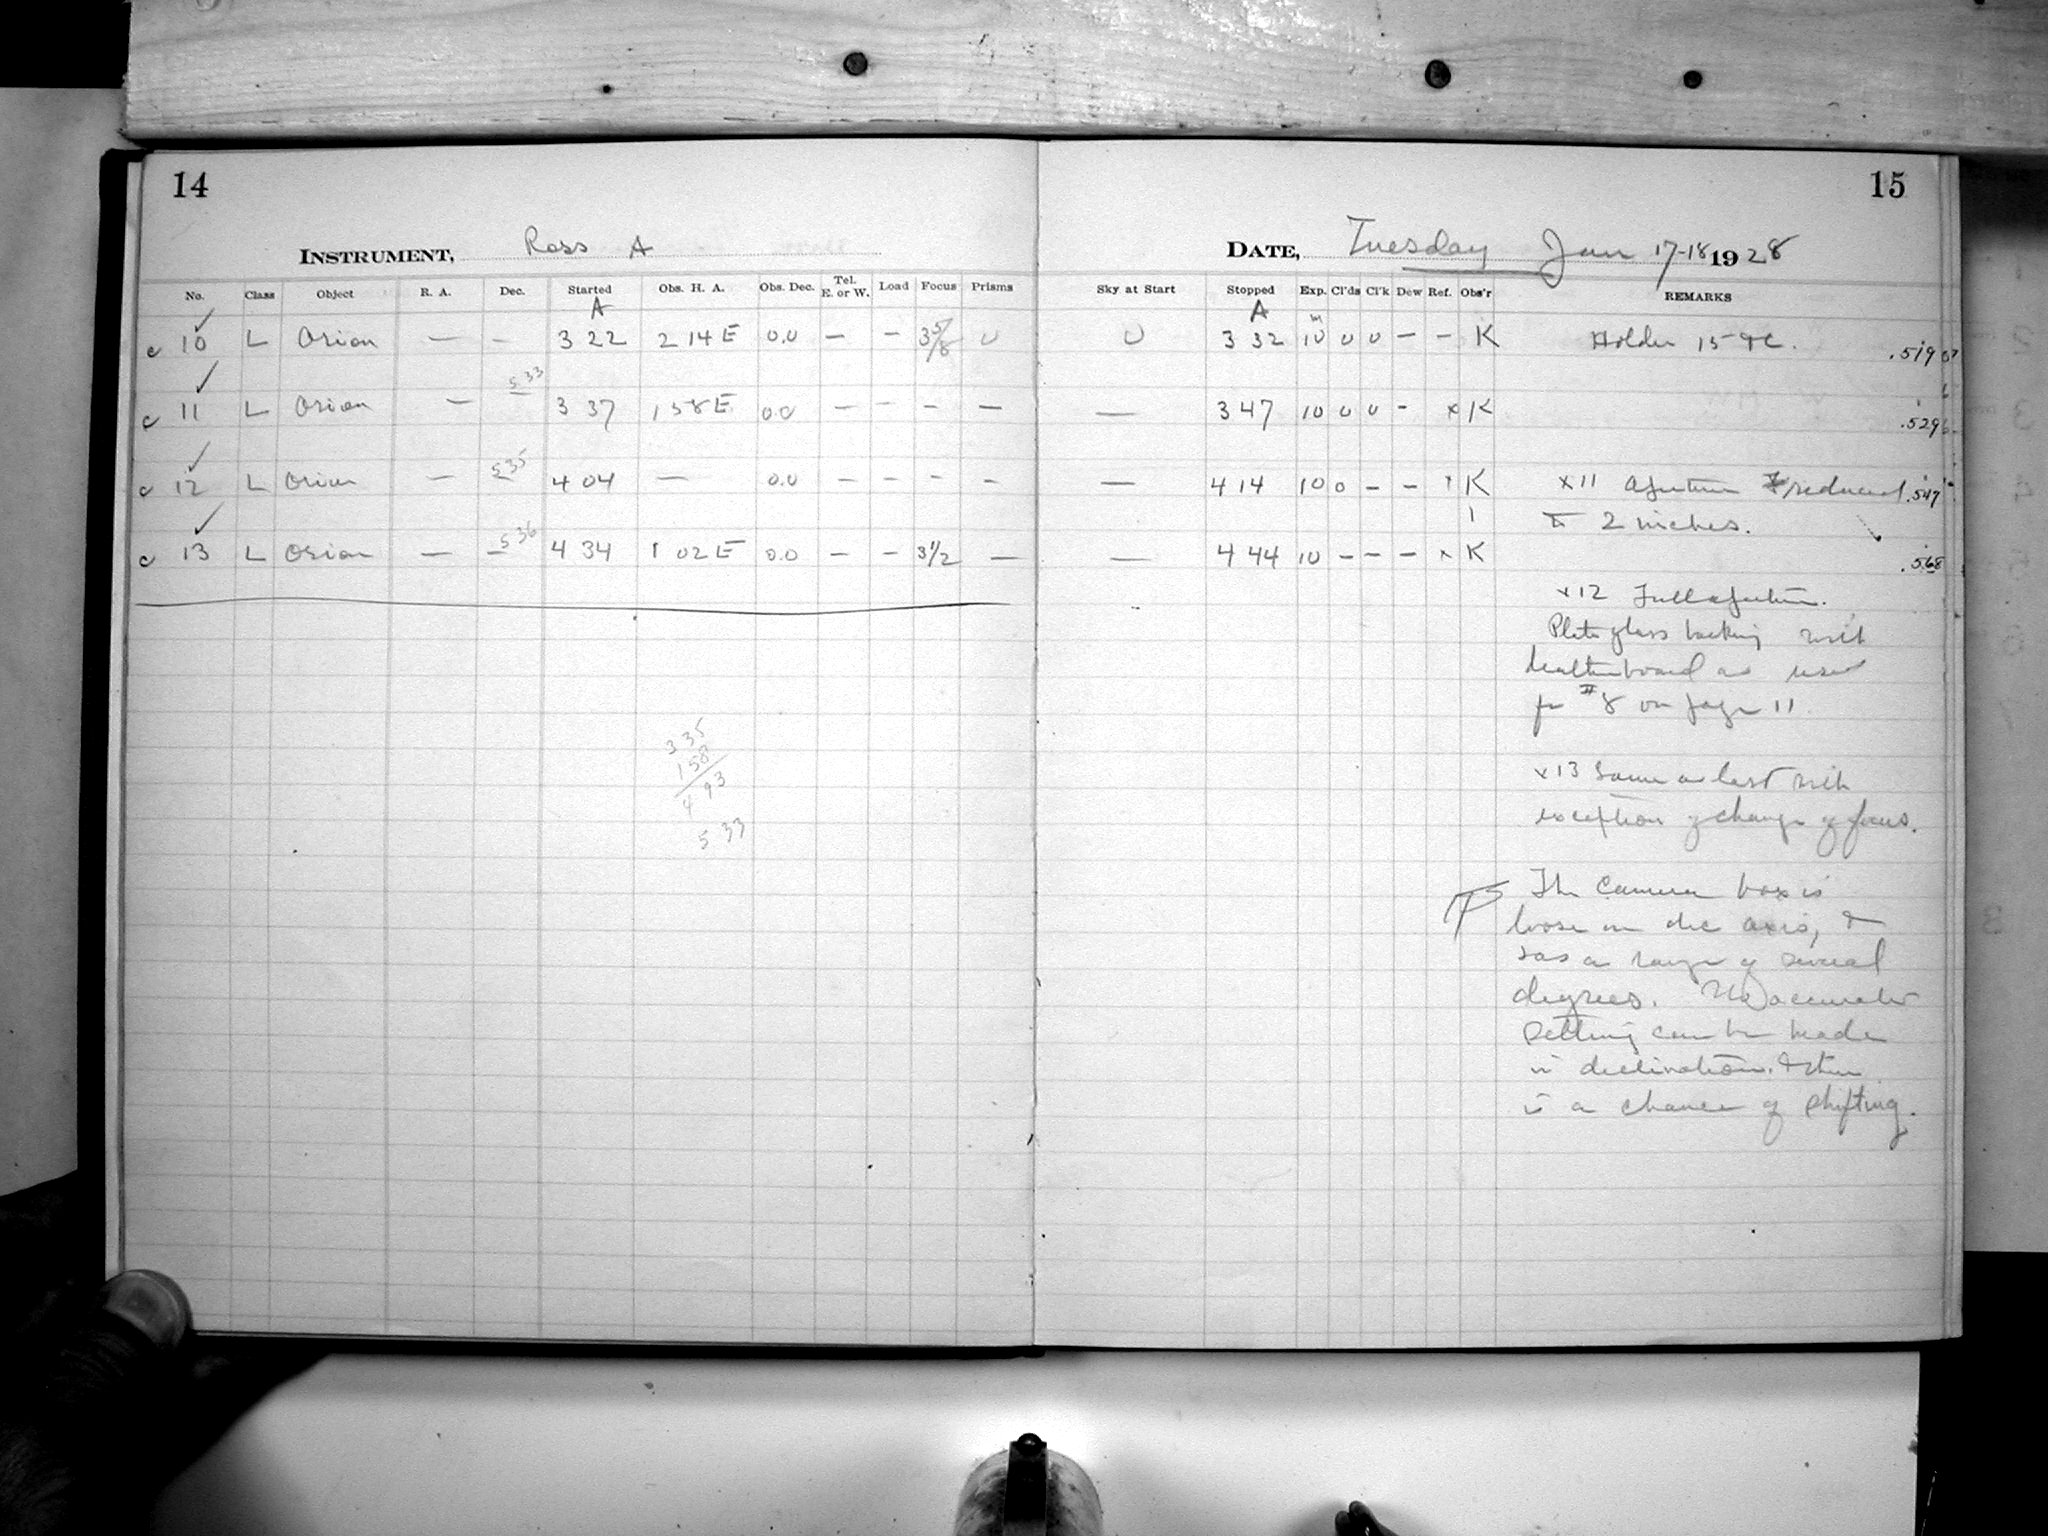 14
INSTRUMENT, Ross A
No. Class Object R. A. Dec. Started Obs. H. A. Obs. Dec. Tel. E. or W. Load Focus Prisms
A
c 10 ✓ L Orion — — 3 22 2 14 E 0.0 — — 3 5/8 0
5 33
c 11 ✓ L Orion — — 3 37 1 58 E 0.0 — — — —
5 35
c 12 ✓ L Orion — — 4 04 — 0.0 — — — —
5 36
c 13 ✓ L Orion — — 4 34 1 02 E 0.0 — — 3 1/2 —
3 35
1 58
4 93
5 33
15
DATE, Tuesday Jan 17-18 1928
Sky at Start Stopped Exp. Cl'ds Cl'k Dew Ref. Obs'r REMARKS
A m
0 3 32 10 0 0 — — K Holder 15 .519
— 3 47 10 0 0 - x K .529
— 4 14 10 0 — — K x11 Aperture reduced .547
to 2 inches.
— 4 44 10 — — — x K .568
x12 Full aperture.
Plate glass backing with
leatherboard as used
for #8 on page 11
x13 Same as last with
exception of change of focus.
The Camera box is
loose on dec axis, &
has a range of several
degrees. No accurate
setting can be made
in declination. & there
is a chance of shifting.